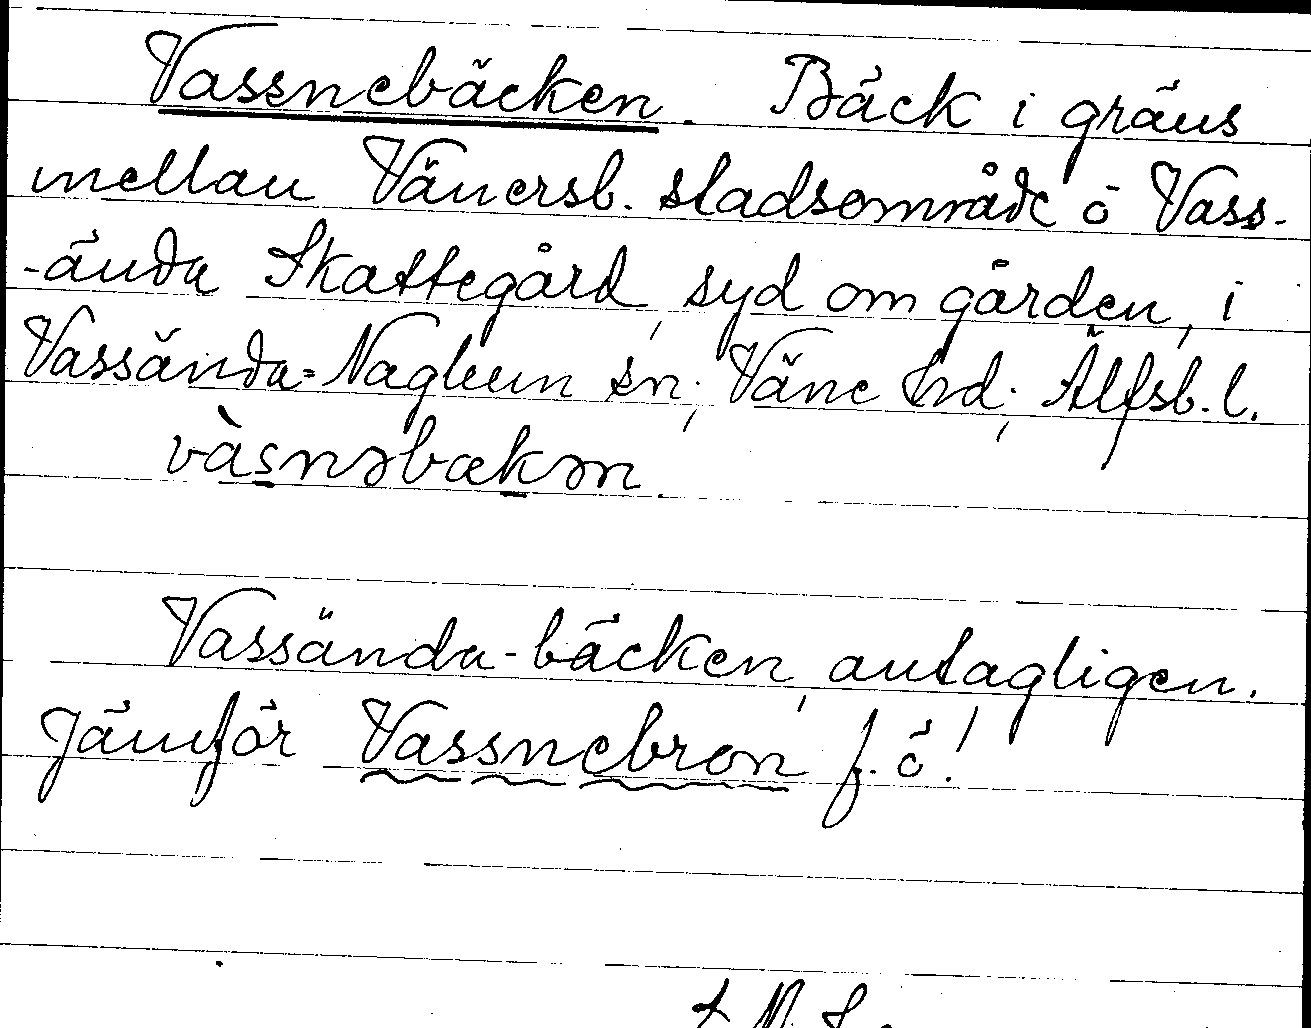 Vassnebäcken. Bäck i gräns
mellan Vänersb. stadsområde ö Vass-
-ända Skattegård, syd om gården, i
Vassända-Naglum sn; Väne hd; Älfsb. l.
vàsnəbækən
Vassända-bäcken, antagligen.
Jämför Vassnebron f. ö.!